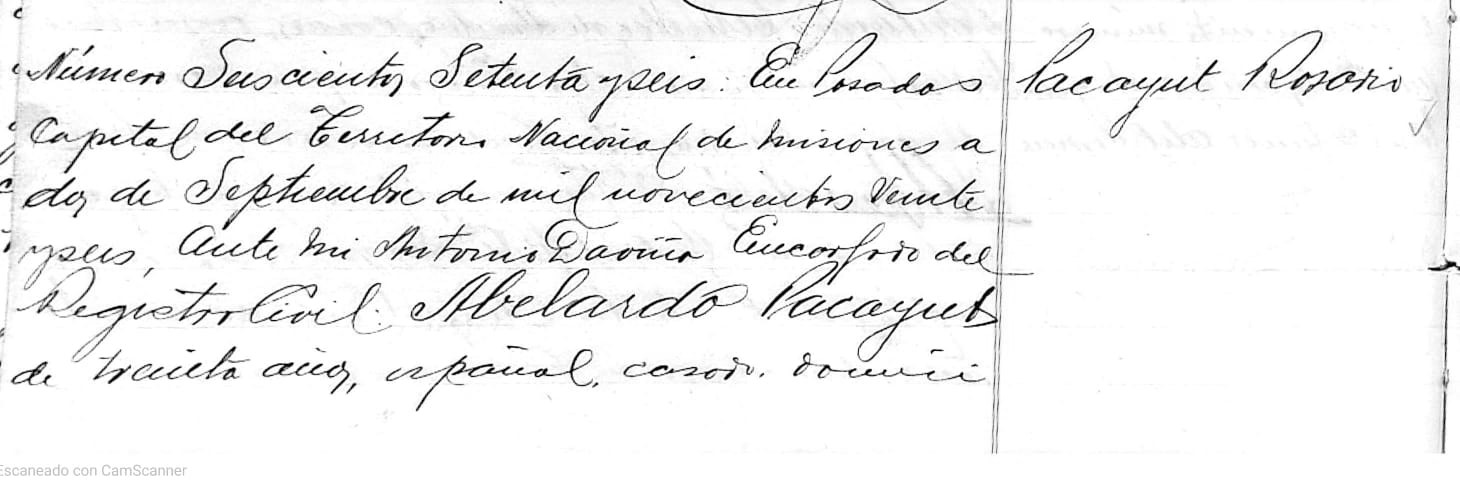 Número Seiscientos Setenta y seis. En Posadas
Capital del Territorio Nacional de Misiones a
dos de Septiembre de mil novecientos Veinte
y seis, Ante mi Antonio Daviña Encargado del
Registro Civil. Abelardo Pacayut
de treinta años, español, casado, domici
Pacayut Rosario
Escaneado con CamScanner